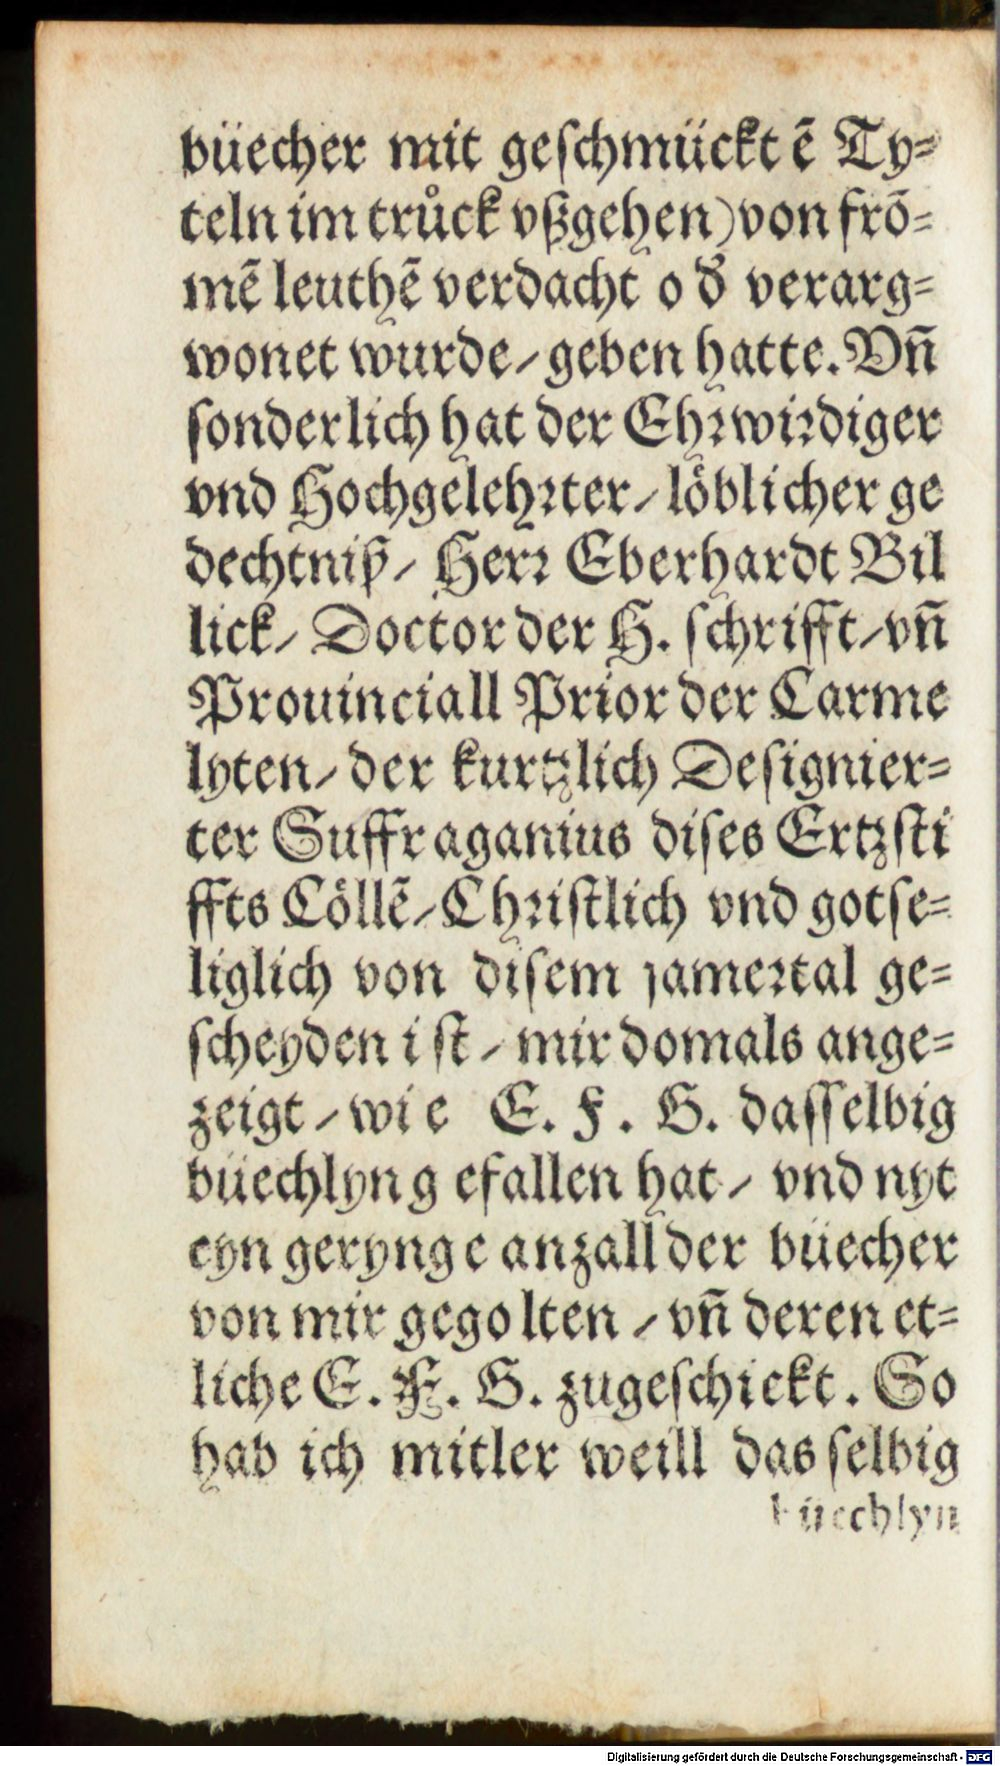 büecher mit geſchmücktē Ty⸗
teln im trůck vßgehen) von frō⸗
mē leuthē verdacht od̕ verarg⸗
wonet wurde / geben hatte. Vn̄
ſonderlich hat der Ehꝛwiꝛdiger
vnd Hochgelehꝛter / löblicher ge
dechtniß / Herꝛ Eberhardt Bil
lick / Doctor der H. ſchrifft / vn̄
Prouinciall Prior der Carme
lyten / der kurtzlich Deſignier⸗
ter Suffraganius diſes Ertzſti
ffts Cöllē / Chꝛiſtlich vnd gotſe⸗
liglich von diſem jameꝛtal ge⸗
ſcheyden iſt / mir domals ange⸗
zeigt / wie E. F. G. daſſelbig
büechlyn gefallen hat / vnd nyt
eyn gerynge anzall der büecher
von mir gegolten / vn̄ deren et⸗
liche E. F. G. zugeſchickt. So
hab ich mitler weill das ſelbig
büechlyn
Digitalisierung gefördert durch die Deutsche Forschungsgemeinschaft - DFG